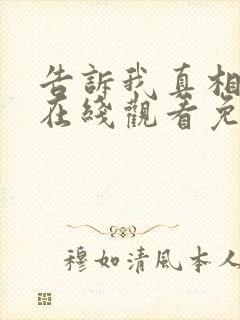 告訴我真相
在綫觀看免
穆如清風本人